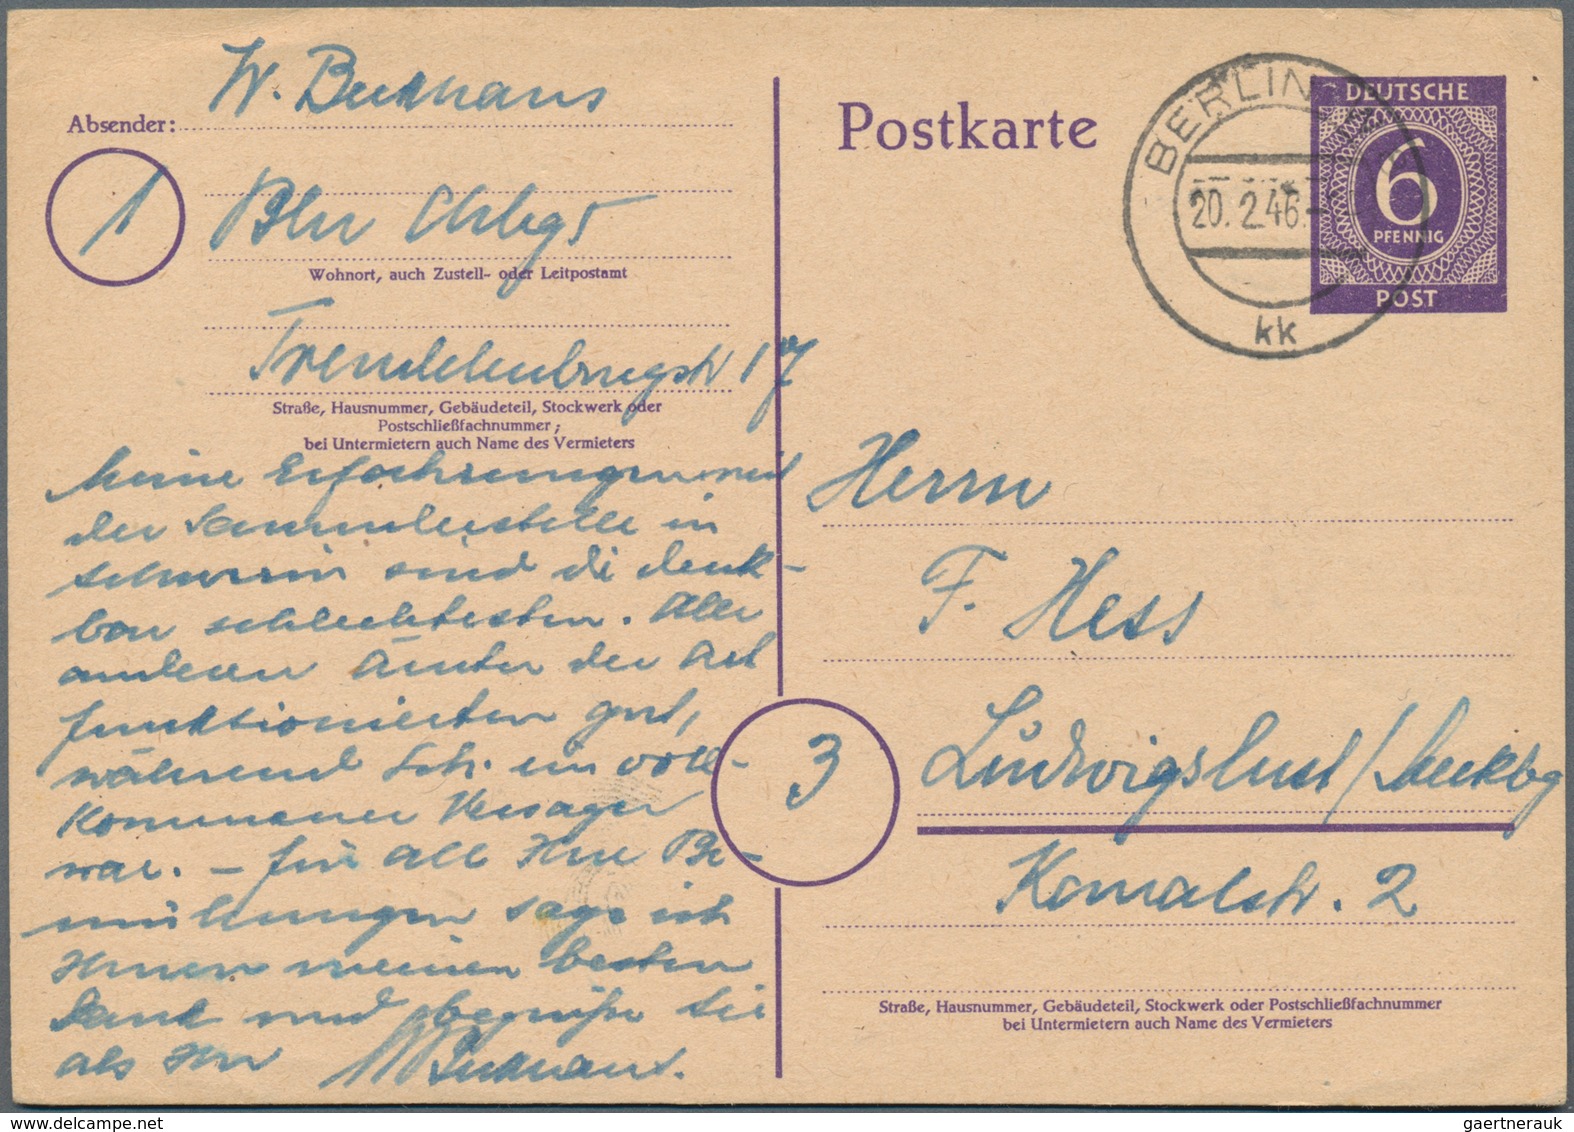 W. Beckhaus
Absender:
1
Bln Chlbg 5
Wohnort, auch Zustell- oder Leitpostamt
Trendelenburgstr 17
Straße, Hausnummer, Gebäudeteil, Stockwerk oder
Postschließfachnummer;
bei Untermietern auch Name des Vermieters
Meine Erfahrungen mit
der Sammlerstelle in
Schwerin sind die denk-
bar schlechtesten. Alle
anderen Ämter der Art
funktionierten gut,
während Sch. ein voll-
kommener Versager
war. – für all Ihre Be-
mühungen sage ich
Ihnen meinen besten
Dank und begrüße Sie
als Ihr W Beckhaus.
Postkarte
BERLIN
20. 2.46.-
kk
DEUTSCHE
6
PFENNIG
POST
Herrn
F. Hess
3
Ludwigslust / Mecklbg
Kanalstr. 2
Straße, Hausnummer, Gebäudeteil, Stockwerk oder Postschließfachnummer
bei Untermietern auch Name des Vermieters
gaertnerauk